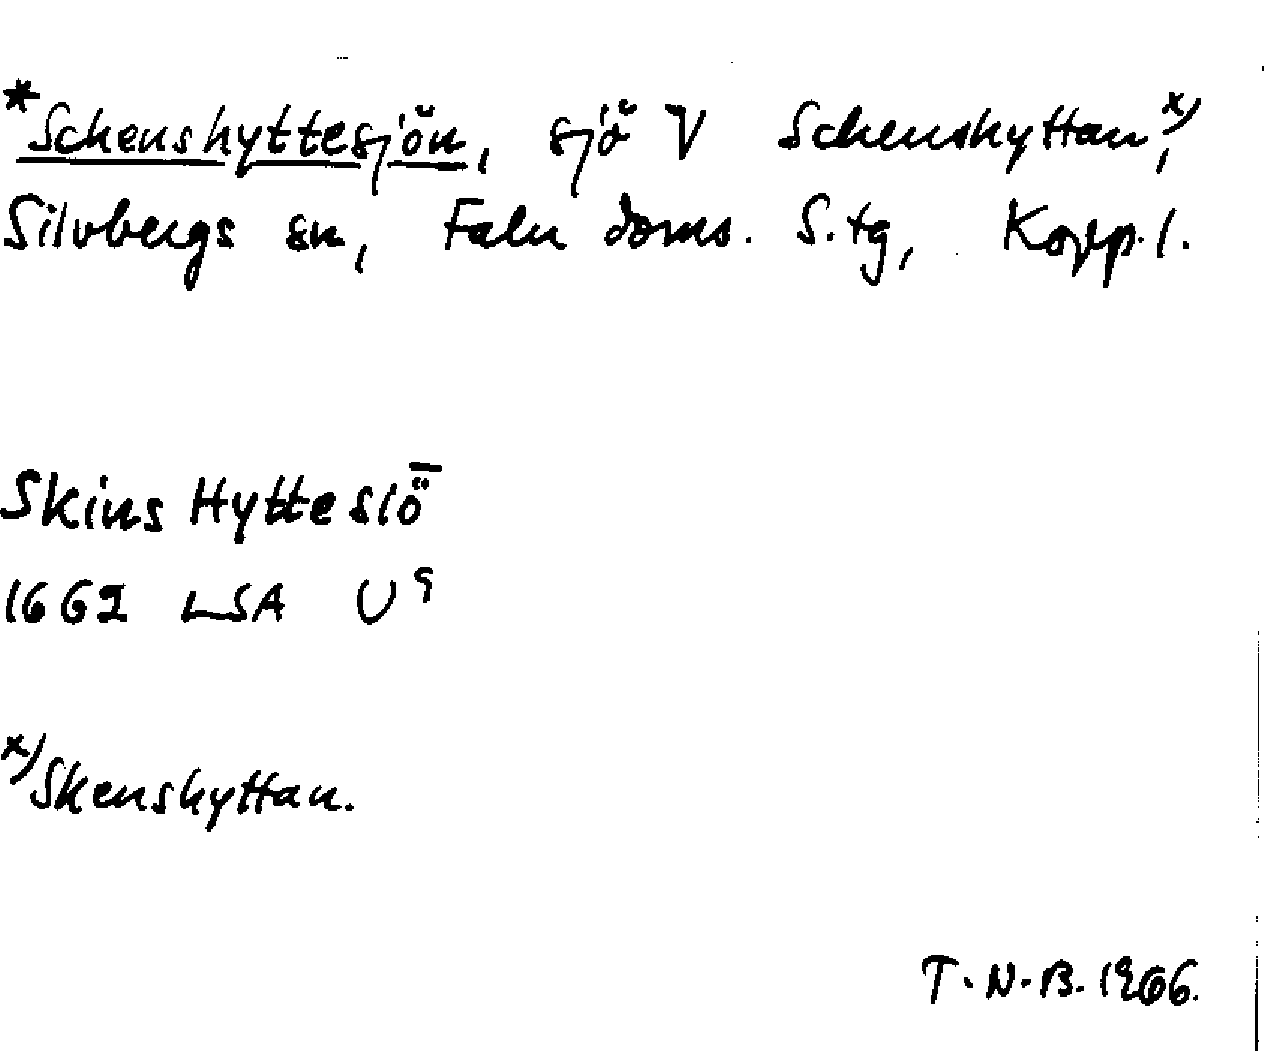 *Schenshyttesjön, sjö V Schenshyttan,x)
Silvbergs sn, Falu doms. S.tg, Kopp.l.
Skins Hyttesiö
1662 LSA U9
x)Skenshyttan.
T.N.B. 1966.